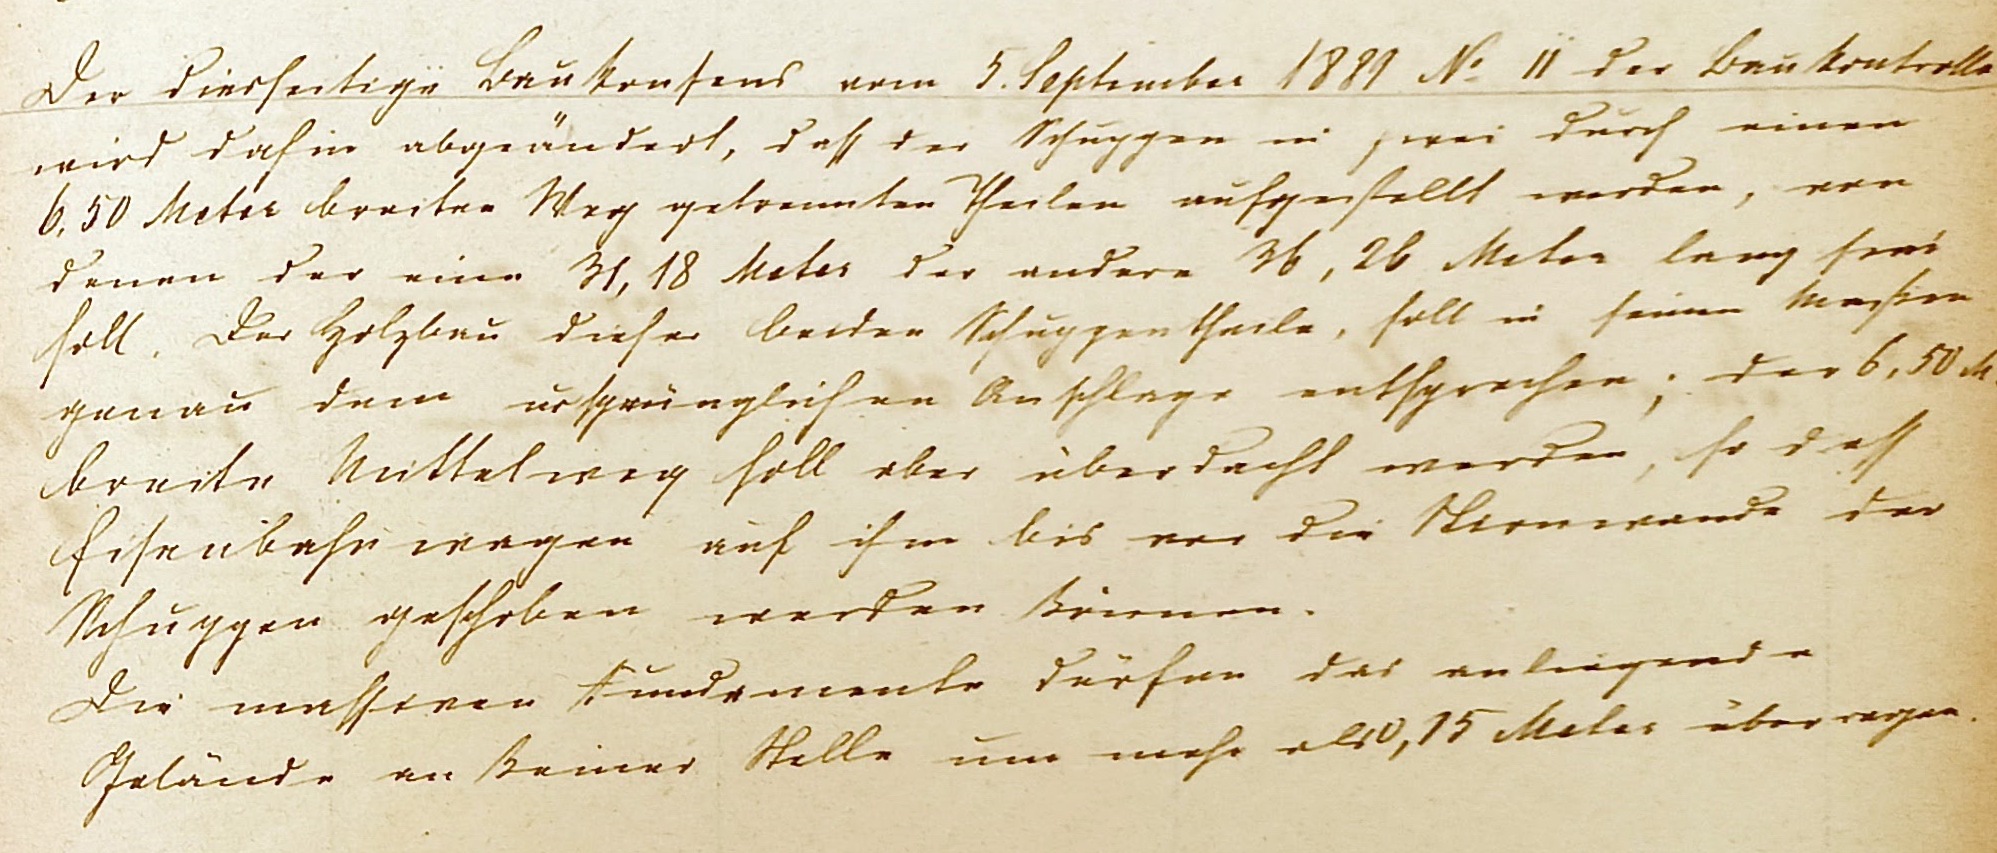 Der diesseitige Baukonsens vom 5. September 1889 No 11 der Baukontrolle
wird dahin abgeändert, daß der Schuppen in zwei durch einen
6,50 Meter breiten Weg getrennten Theilen aufgestellt werden, von
denen der eine 31,18 Meter der andere 36,26 Meter lang sein
soll. Der Holzbau dieser beiden Schuppentheile, soll in seinen Massen
genau dem ursprünglichen Anschlage entsprechen; der 6,50 M.
breite Mittelweg soll aber überdacht werden, so daß
Eisenbahnwagen auf ihm bis vor die Stirnwände der
Schuppen geschoben werden können.
Die massiven Fundamente dürfen das anliegende
Gelände an keiner Stelle um mehr als 0,75 Meter überragen.